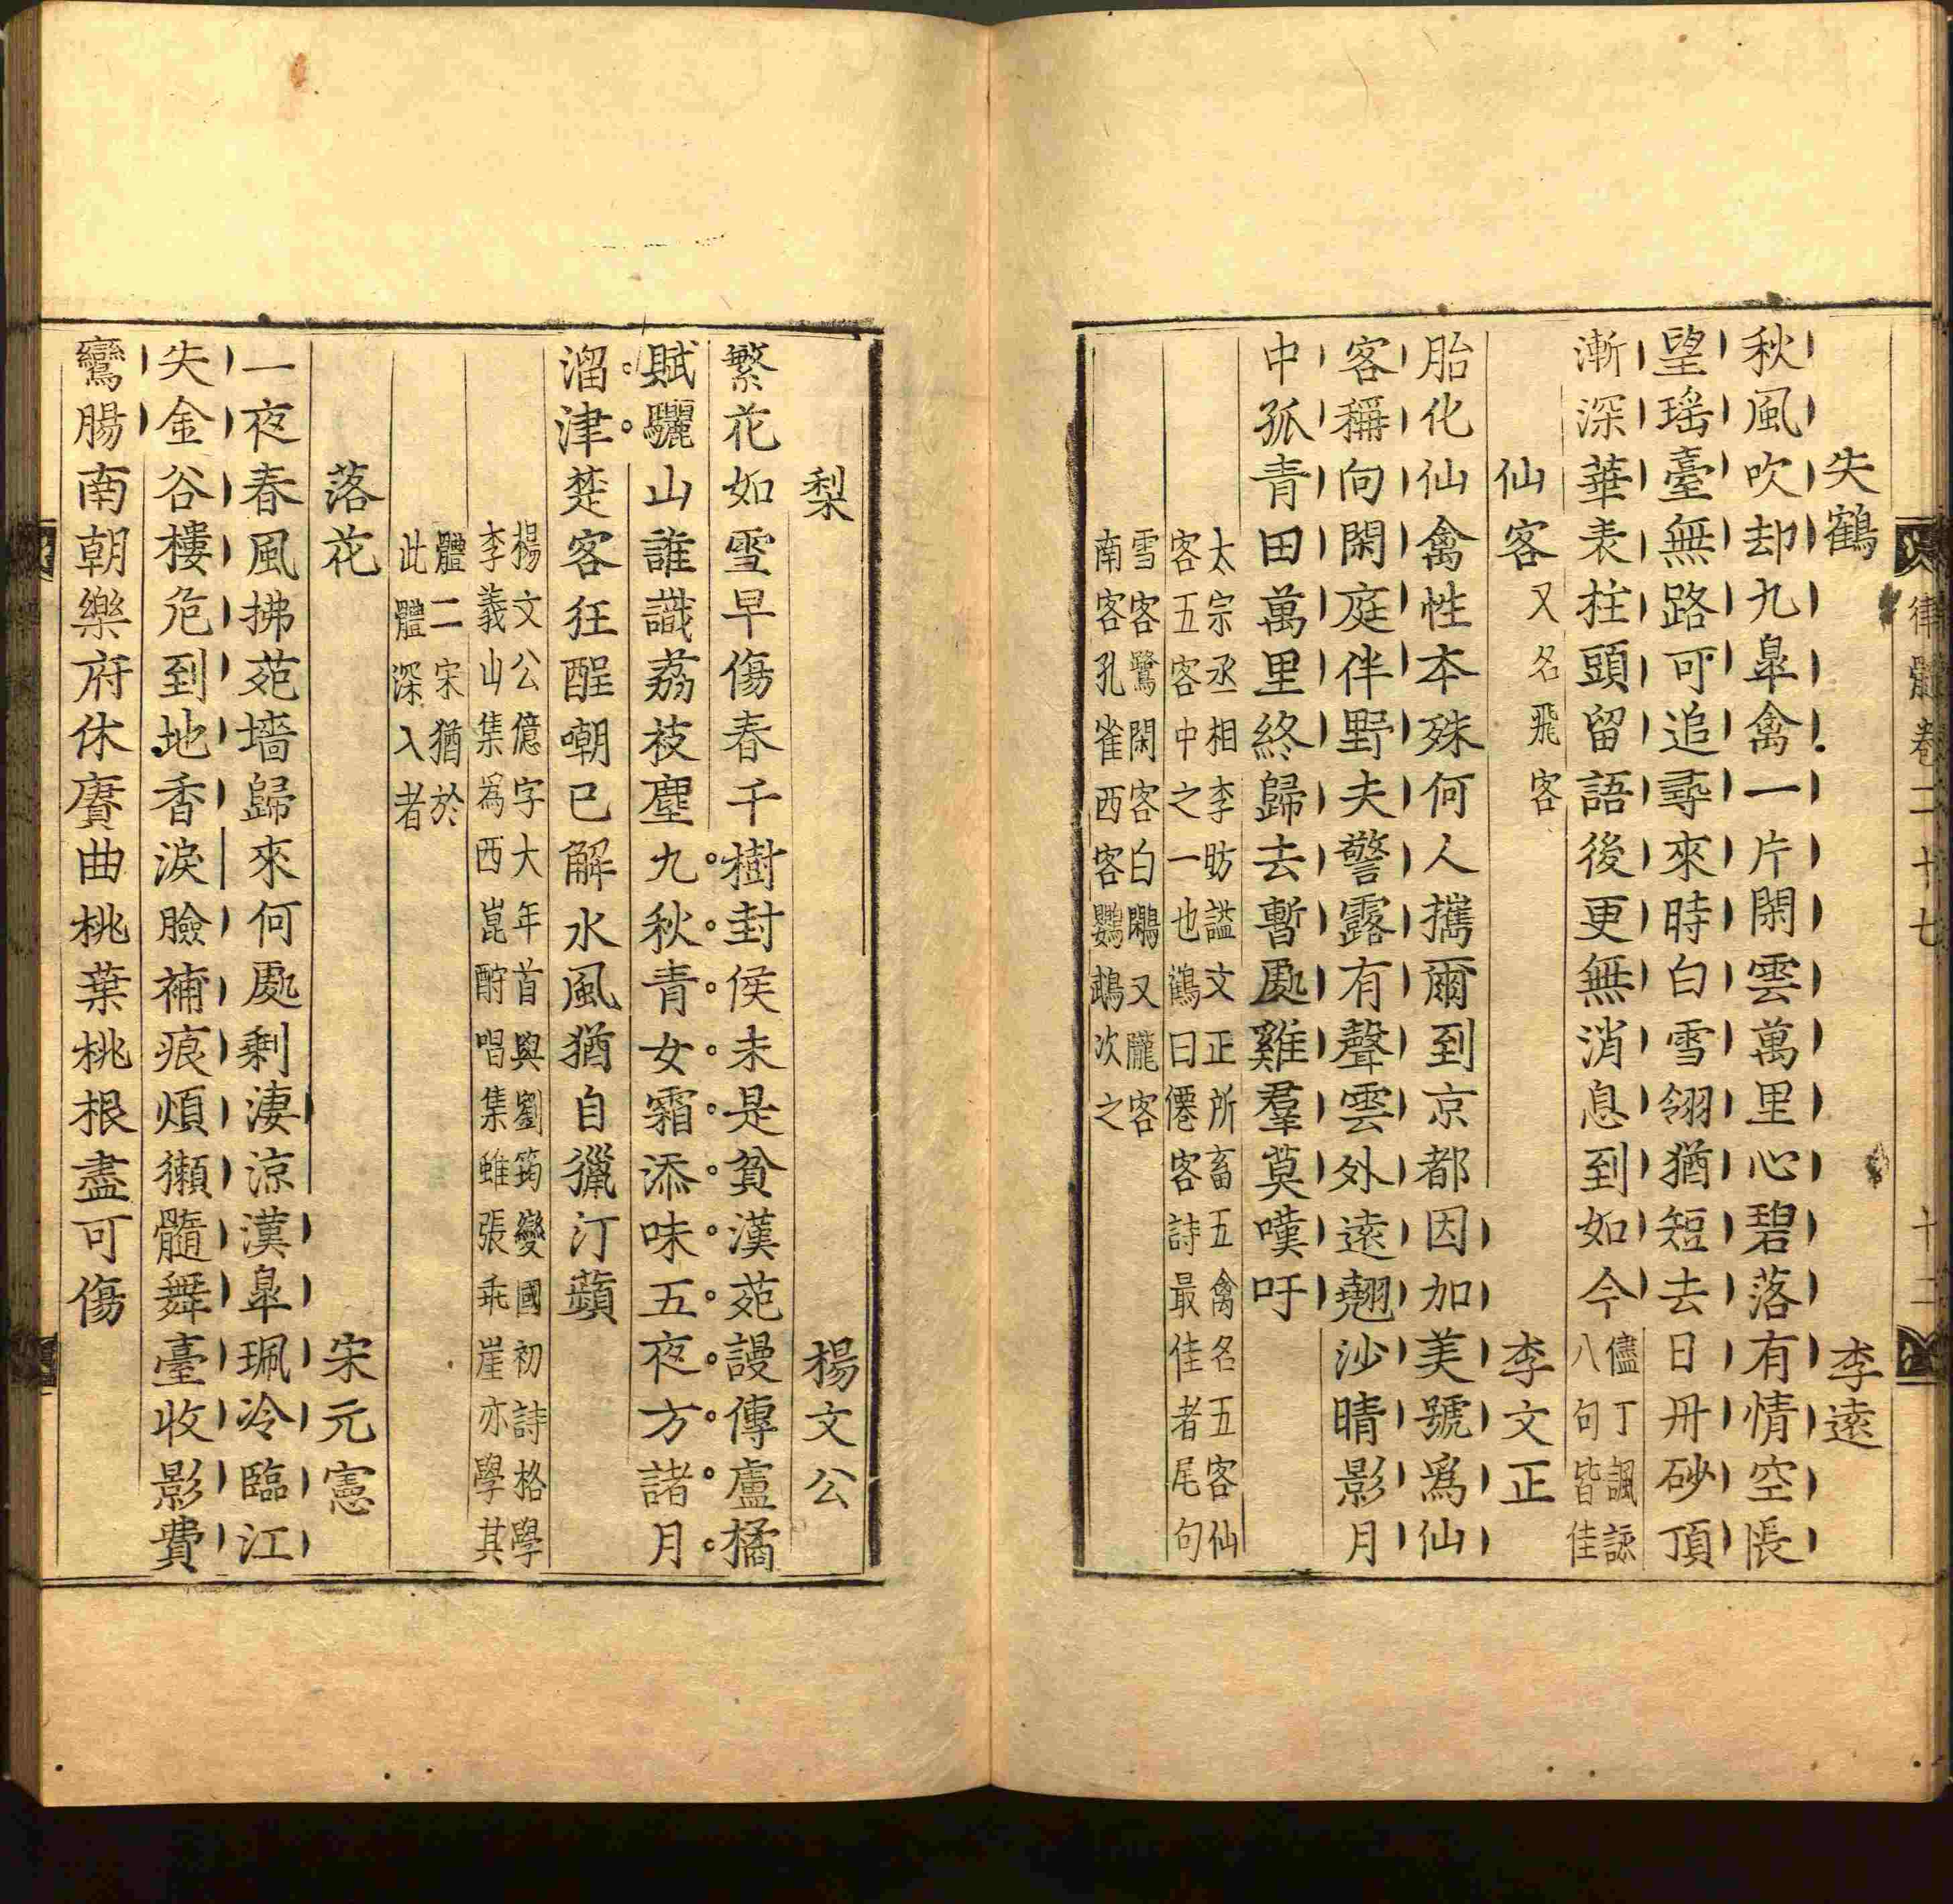 律髓卷二十七 十二
失鶴 李遠
秋風吹却九皐禽一片閑雲萬里心碧落有情空悵
望瑤臺無路可追尋來時白雪翎猶短去日丹砂頂
漸深華表柱頭留語後更無消息到如今
儘丁諷詠
八句皆佳
仙客又名飛客 李文正
胎化仙禽性本殊何人攜爾到京都因加美號爲仙
客稱向閑庭伴野夫警露有聲雲外遠翹沙晴影月
中孤青田萬里終歸去暫處雞羣莫嘆吁
太宗丞相李昉謚文正所畜五禽名五客仙
客五客中之一也鶴曰僊客詩最佳者尾句
雪客鷺閑客白鷴又隴客
南客孔雀西客鸚鵡次之
梨 楊文公
繁花如雪早傷春千樹封侯未是貧漢苑謾傳盧橘
賦驪山誰識荔枝塵九秋青女霜添味五夜方諸月
溜津楚客狂酲嘲已解水風猶自獵汀蘋
楊文公億字大年首與劉筠變國初詩格學
李義山集爲西崑酧唱集雖張乖崖亦學其
體二宋猶於
此體深入者
落花 宋元憲
一夜春風拂苑墻歸來何處剩淒涼漢皐珮冷臨江
失金谷樓危到地香淚臉補痕煩獺髓舞臺收影費
鸞腸南朝樂府休賡曲桃葉桃根盡可傷